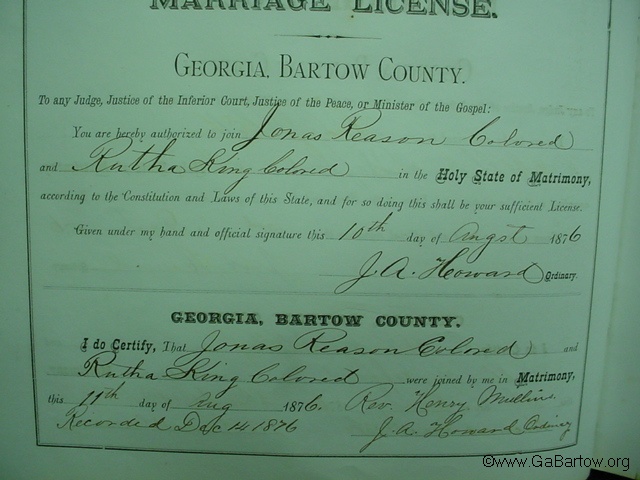 MARRIAGE LICENSE.
GEORGIA, BARTOW COUNTY.
To any Judge, Justice of the Inferior Court, Justice of the Peace, or Minister of the Gospel:
You are hereby authorized to join Jonas Reason Colored
and Rutha King Colored in the Holy State of Matrimony,
according to the Constitution and Laws of this State, and for so doing this shall be your sufficient License.
Given under my hand and official signature this 10th day of Angst 1876
J. A. Howard Ordinary.
GEORGIA, BARTOW COUNTY.
I do Certify, That Jonas Reason Colored and
Rutha King Colored were joined by me in Matrimony,
this 11th day of Aug 1876. Rev. Henry
Recorded Dec 14 1876 J. A. Howard
©www.GaBartow.org